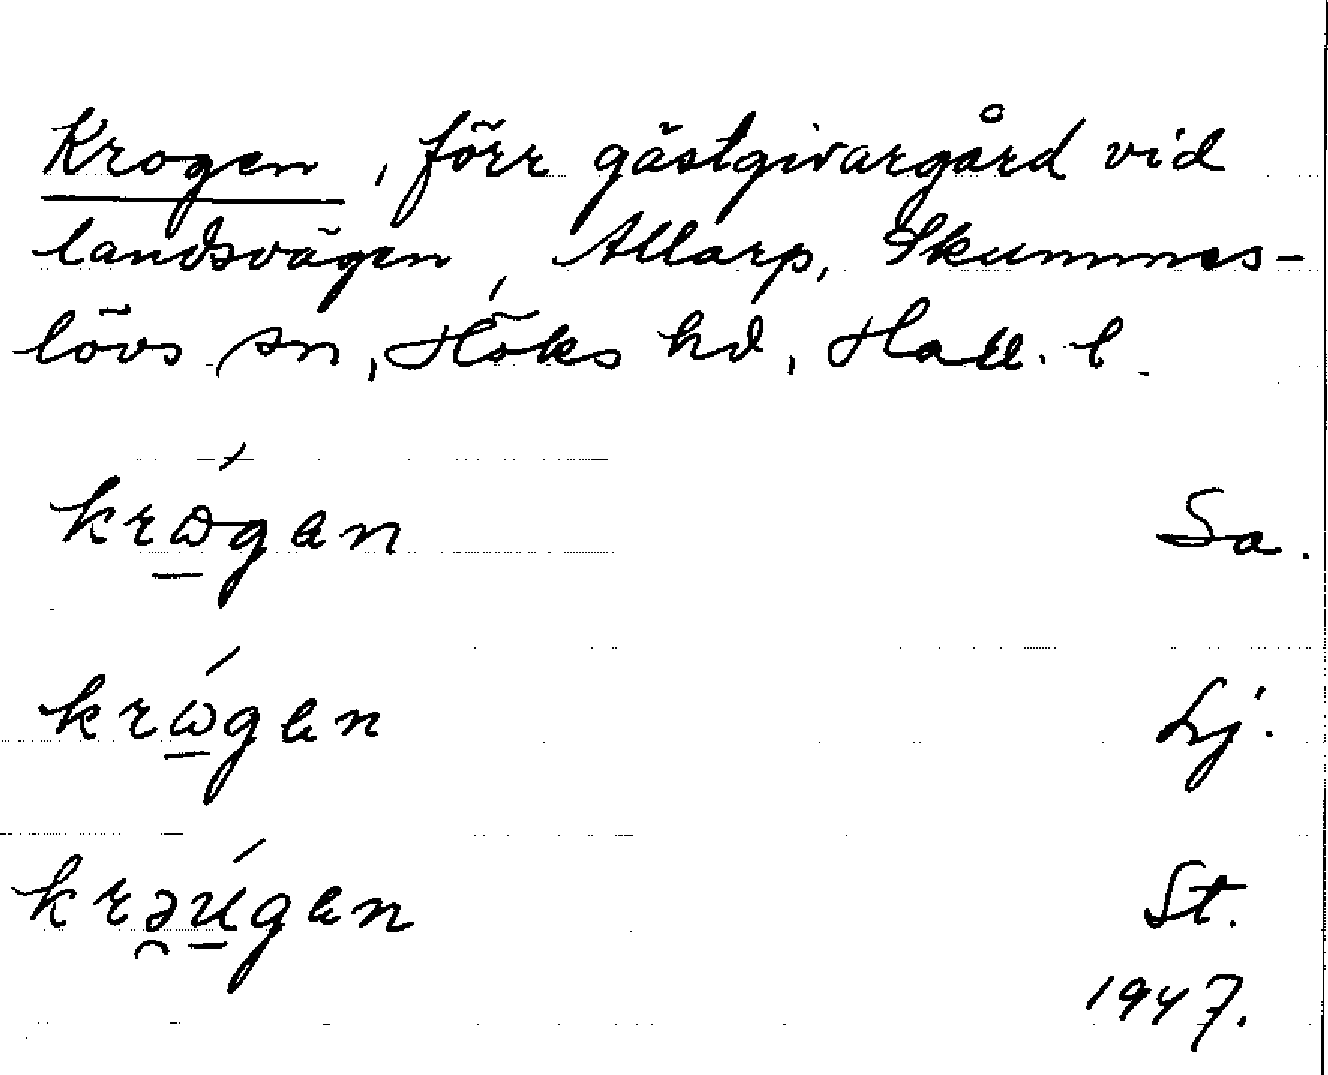 Krogen, förr gästgivargård vid
landsvägen, Allarp, Skummes-
lövs sn, Höks hd, Hall. l.
krώ̱gan Sa.
krώ̱gen Lj.
krə̯ṵ́gan St.
1947.